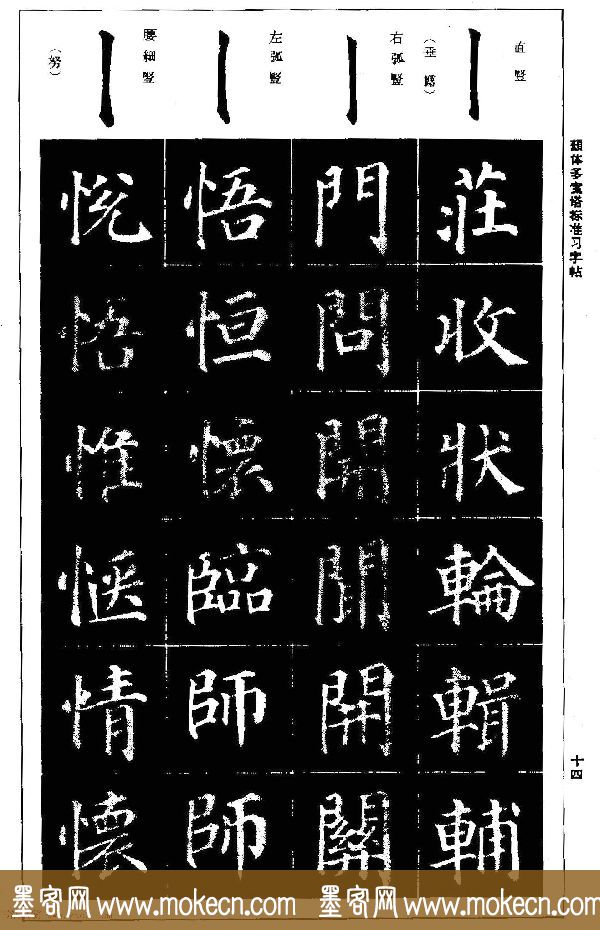 颜体多宝塔标准习字帖
十四
直竖
（垂露）
莊收狀輪輯輔
右弧竖
門問開開關
左弧竖
悟恒懷臨師師
腰細竖
（努）
悦悟惟愜情懷
墨客网 www.mokecn.com 墨客网 www.mokecn.com